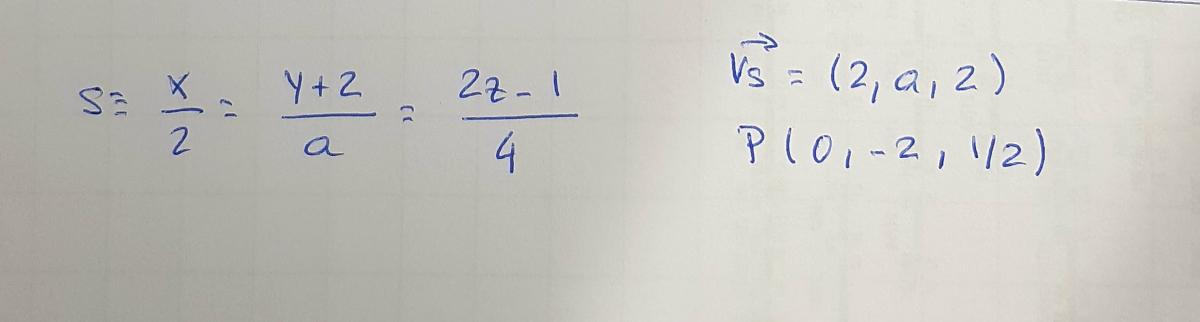 S ≡ x/2 = (y+2)/a = (2z-1)/4
→Vs = (2, a, 2)
P(0, -2, 1/2)